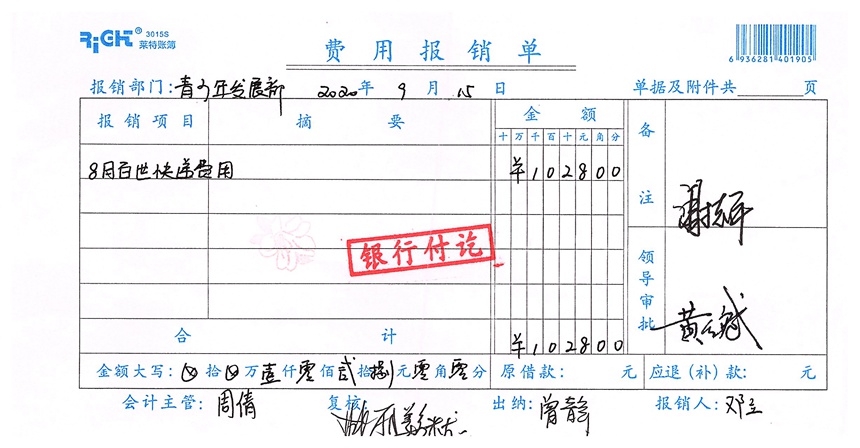 RiGHT® 3015S
莱特账簿
费用报销单
6 936281 401905
报销部门:青少年发展部 2020年 9月 15日 单据及附件共 页
报销项目 摘要 金额 备注
十 万 千 百 十 元 角 分
8月百世快递费用 ¥102800
银行付讫
领导审批
合计 ¥102800
金额大写:⊗拾⊗万壹仟零佰贰拾捌元零角零分 原借款: 元 应退(补)款: 元
会计主管:周倩 复核: 出纳:曾静 报销人:邓立